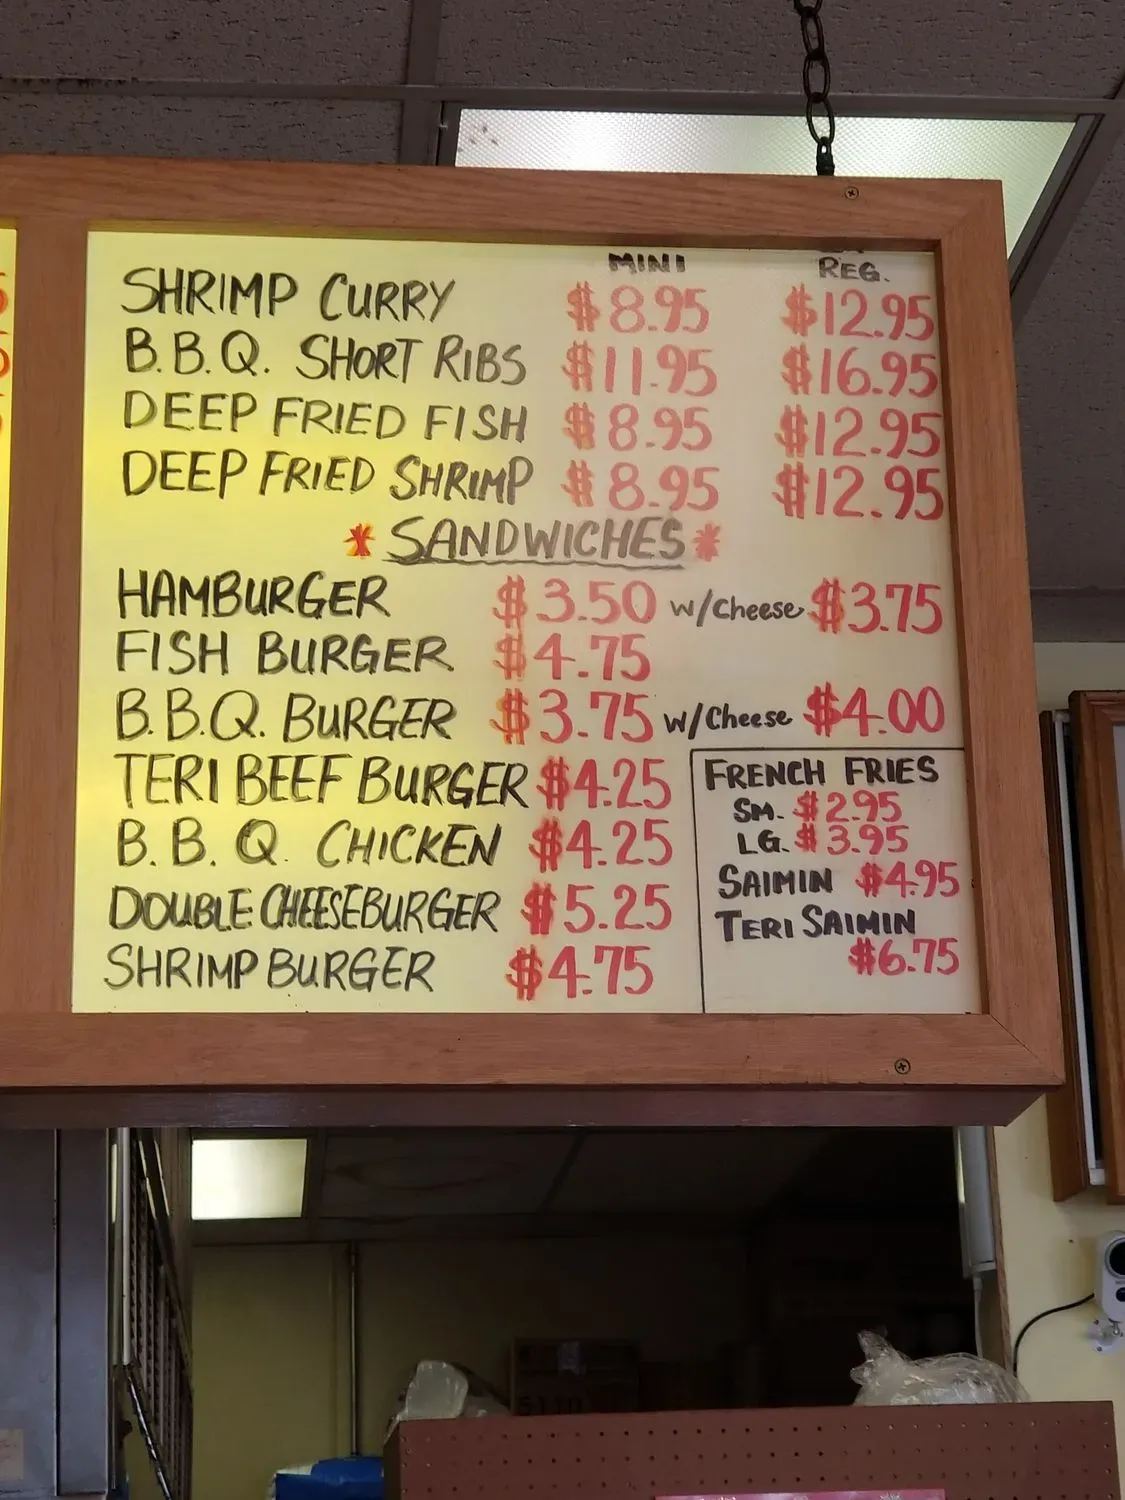 MINI REG.
SHRIMP CURRY $8.95 $12.95
B.B.Q. SHORT RIBS $11.95 $16.95
DEEP FRIED FISH $8.95 $12.95
DEEP FRIED SHRIMP $8.95 $12.95
* SANDWICHES *
HAMBURGER $3.50 w/Cheese $3.75
FISH BURGER $4.75
B.B.Q. BURGER $3.75 w/Cheese $4.00
TERI BEEF BURGER $4.25
B.B.Q. CHICKEN $4.25
DOUBLE CHEESEBURGER $5.25
SHRIMP BURGER $4.75
FRENCH FRIES
SM. $2.95
LG. $3.95
SAIMIN $4.95
TERI SAIMIN
$6.75